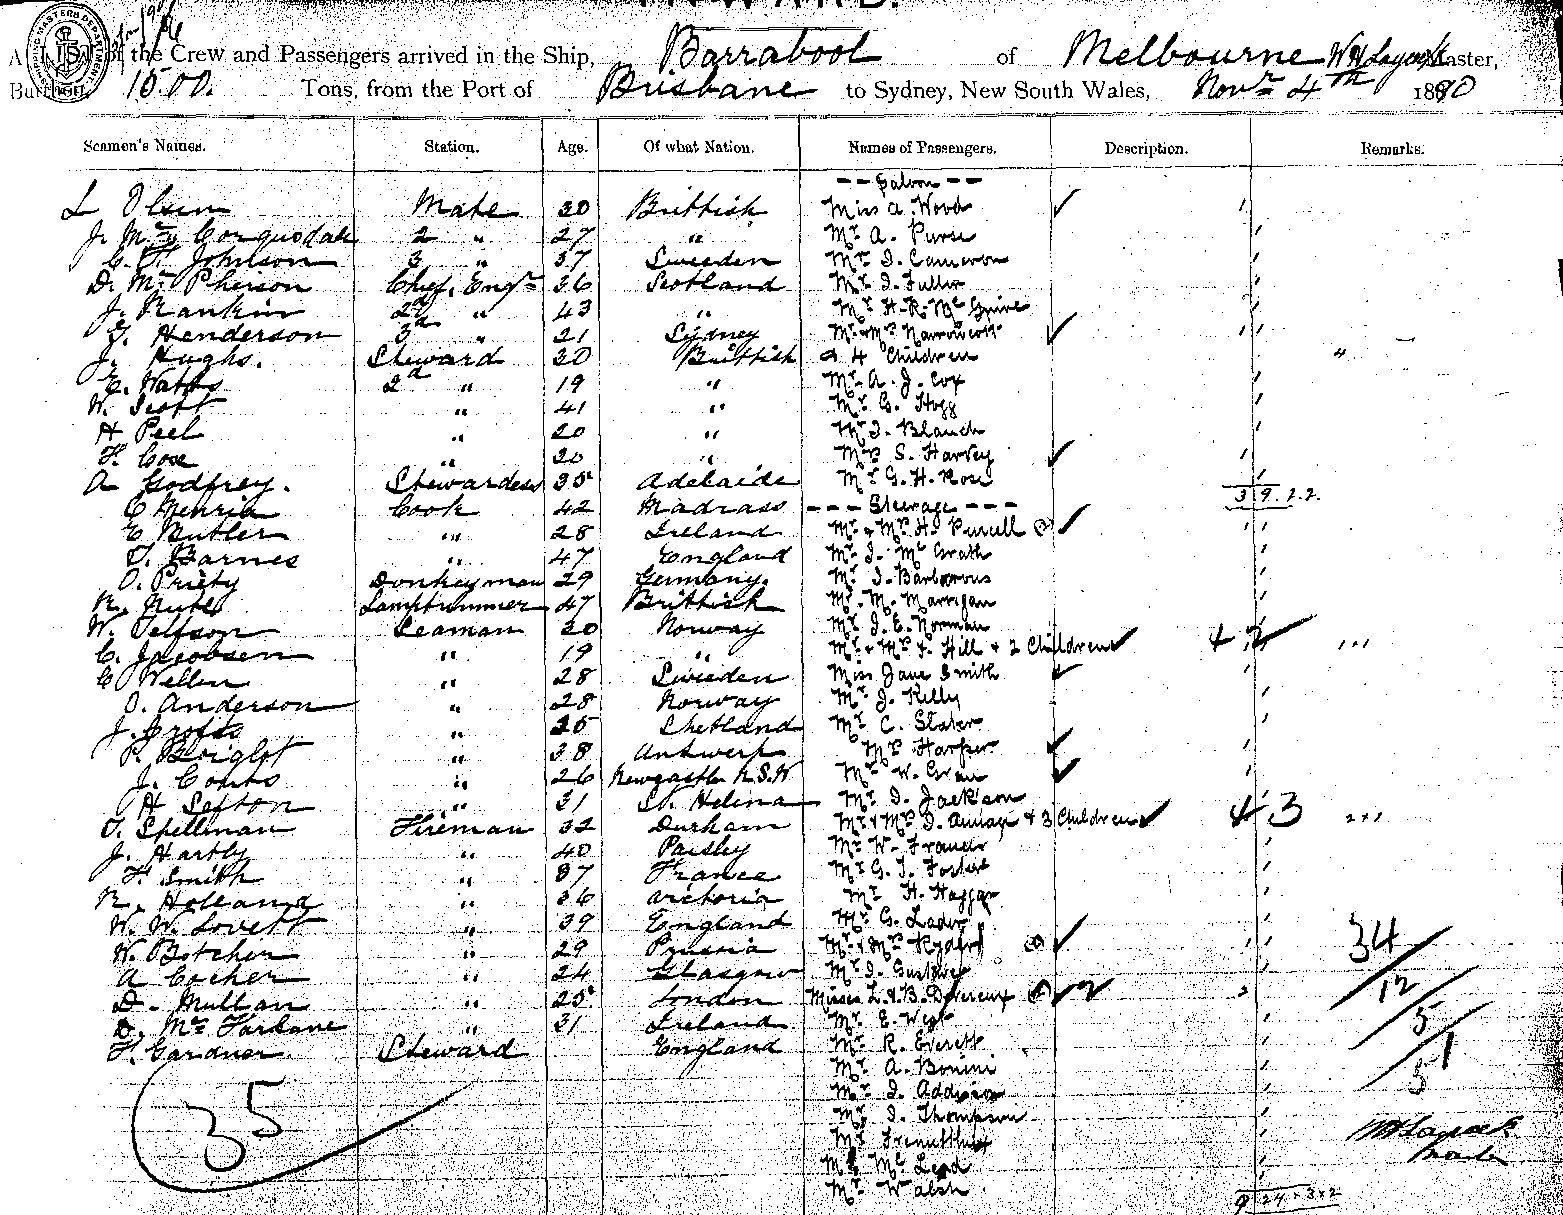 of the Crew and Passengers arrived in the Ship, Barrabool of Melbourne Master,
Burthen, 1500. Tons, from the Port of Brisbane to Sydney, New South Wales, Novr 4th 1890
Seamen's Names. Station. Age. Of what Nation. Names of Passengers. Description. Remarks.
-- Saloon --
L Olsen Mate 30 Brittish Miss A. Wood
J. Mc Corquodale 2 " 27 " Mr. A. Purse
C. F. Johnson 3 " 37 Sweeden Mr. I. Cameron
D. Mc Pherson Chief. Engr 36 Scotland Mr. I. Fuller
J. Rankin 2d " 43 " Mr. H. R. Mc Guire
T. Henderson 3d " 21 Sydney Mr. & Mrs.
J. Hughs. Steward 30 Brittish & 4 Children "
E. Watts 2d " 19 " Mr. A. J. Cox
W. Scott " 41 " Mr. G. Hogg
H Peel " 20 " Mr. I. Blanch
F. Cose " 20 " Mrs S. Harvey
A Godfrey. Stewardess 35 Adelaide Mr. G. H. Rose 39.2.2.
C Menria Cook 42 Madrass --- Steerage ---
E Butler " 28 Ireland Mr. & Mrs. H. Purcell (2)
T. Barnes " 47 England Mr. I. Mc Grath
O. Priety Donkeyman 29 Germany. Mr. I. Barbarous
R. Lamptrimmer 47 Brittish Mr. M. Marrigan
W. Telfson Seaman 20 Norway Mr. J. E. Norman
C. Jacobsen " 19 " Mr. & Mrs. F. Hill & 2 Children 4 2 "
C Wellen " 28 Sweeden Miss Jane Smith
O. Anderson " 28 Norway Mr. J. Kelly
J. " 25 Shetland Mr. C. Slater
P. " 38 Antwerp Mrs Harper
J. Coutts " 26 Newcastle N.S.W Mr. W. Gran
H Sefton " 31 St. Helina Mr. I. Jackson
T. Spellman Fireman 32 Durham Mr. & Mrs. D. & 3 Children 4 3 "
J. Hartly " 40 Paisley Mr. W. Francis
F. Smith " 37 France Mr. G. T. Foster
R. Holland " 36 Victoria Mr. H. Haggar
W. W. Lovett " 39 England Mr. G. Lador
W. Botcher " 29 Prussia Mr. & Mrs. (2) 34
A Cocher " 24 Glasgow Mr. I. 12
D. Mullan " 25 London Misses L. & B. Devereux (2) 2 2 5
D. Mc Farlane " 31 Ireland Mr. E. West 1
F. Gardner. Steward England Mr. R. Everett 5
35 Mr. A. Bonini
Mr. I. Addison
Mr. I. Thompson
Mr.
Mr. Mc Leod
Mr. Walsh